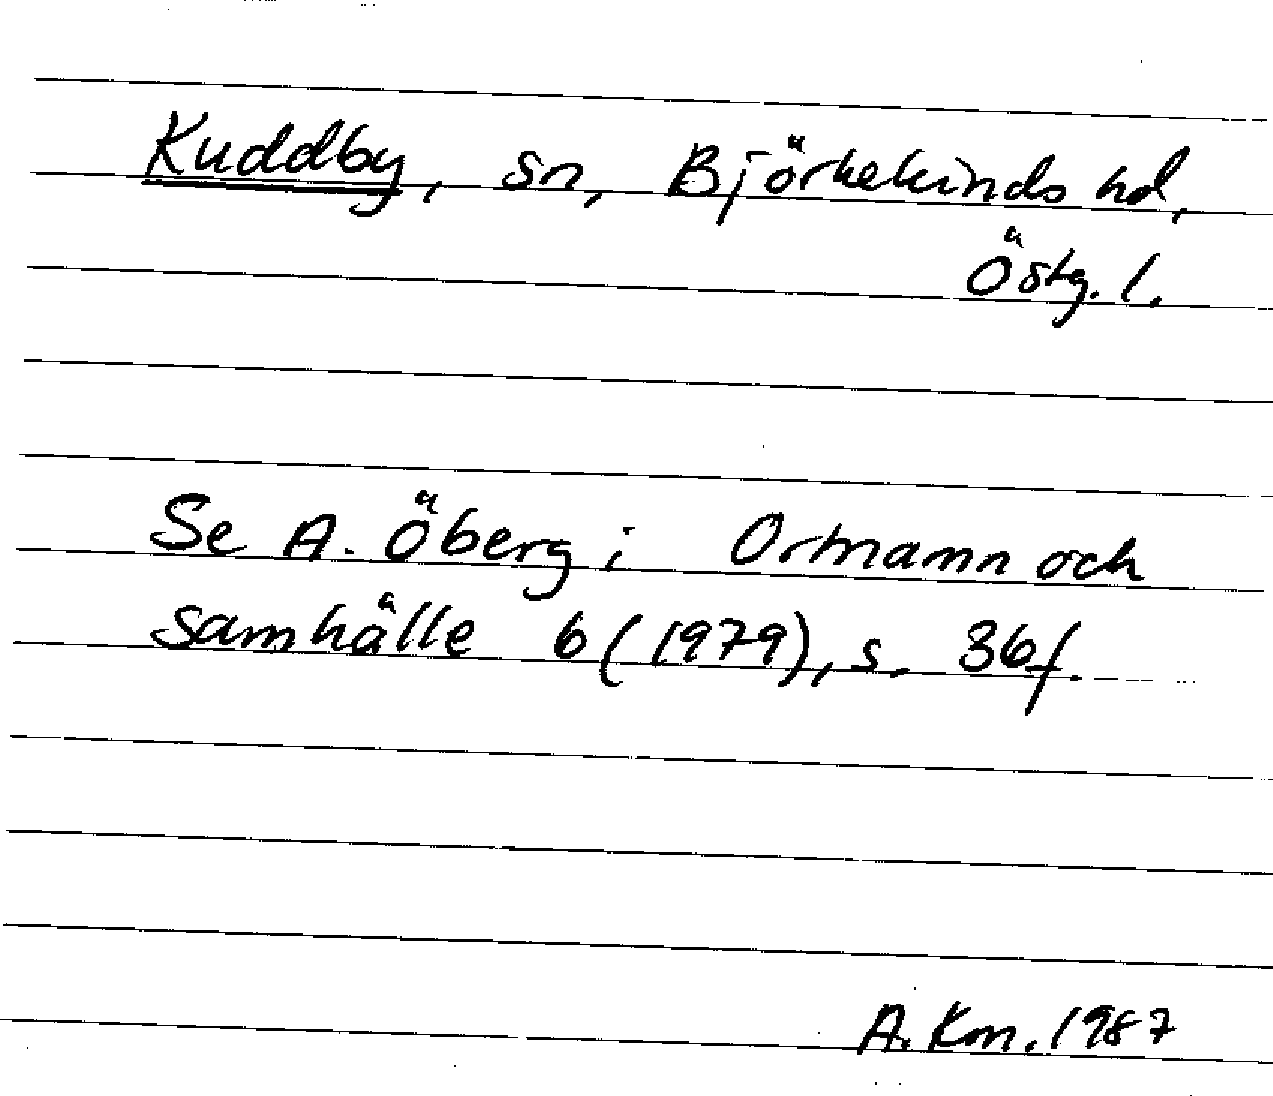 Kuddby, sn, Björkekinds hd,
Östg. l.
Se A. Öberg i Ortnamn och
samhälle 6 (1979), s. 36f.
A. Km. 1987